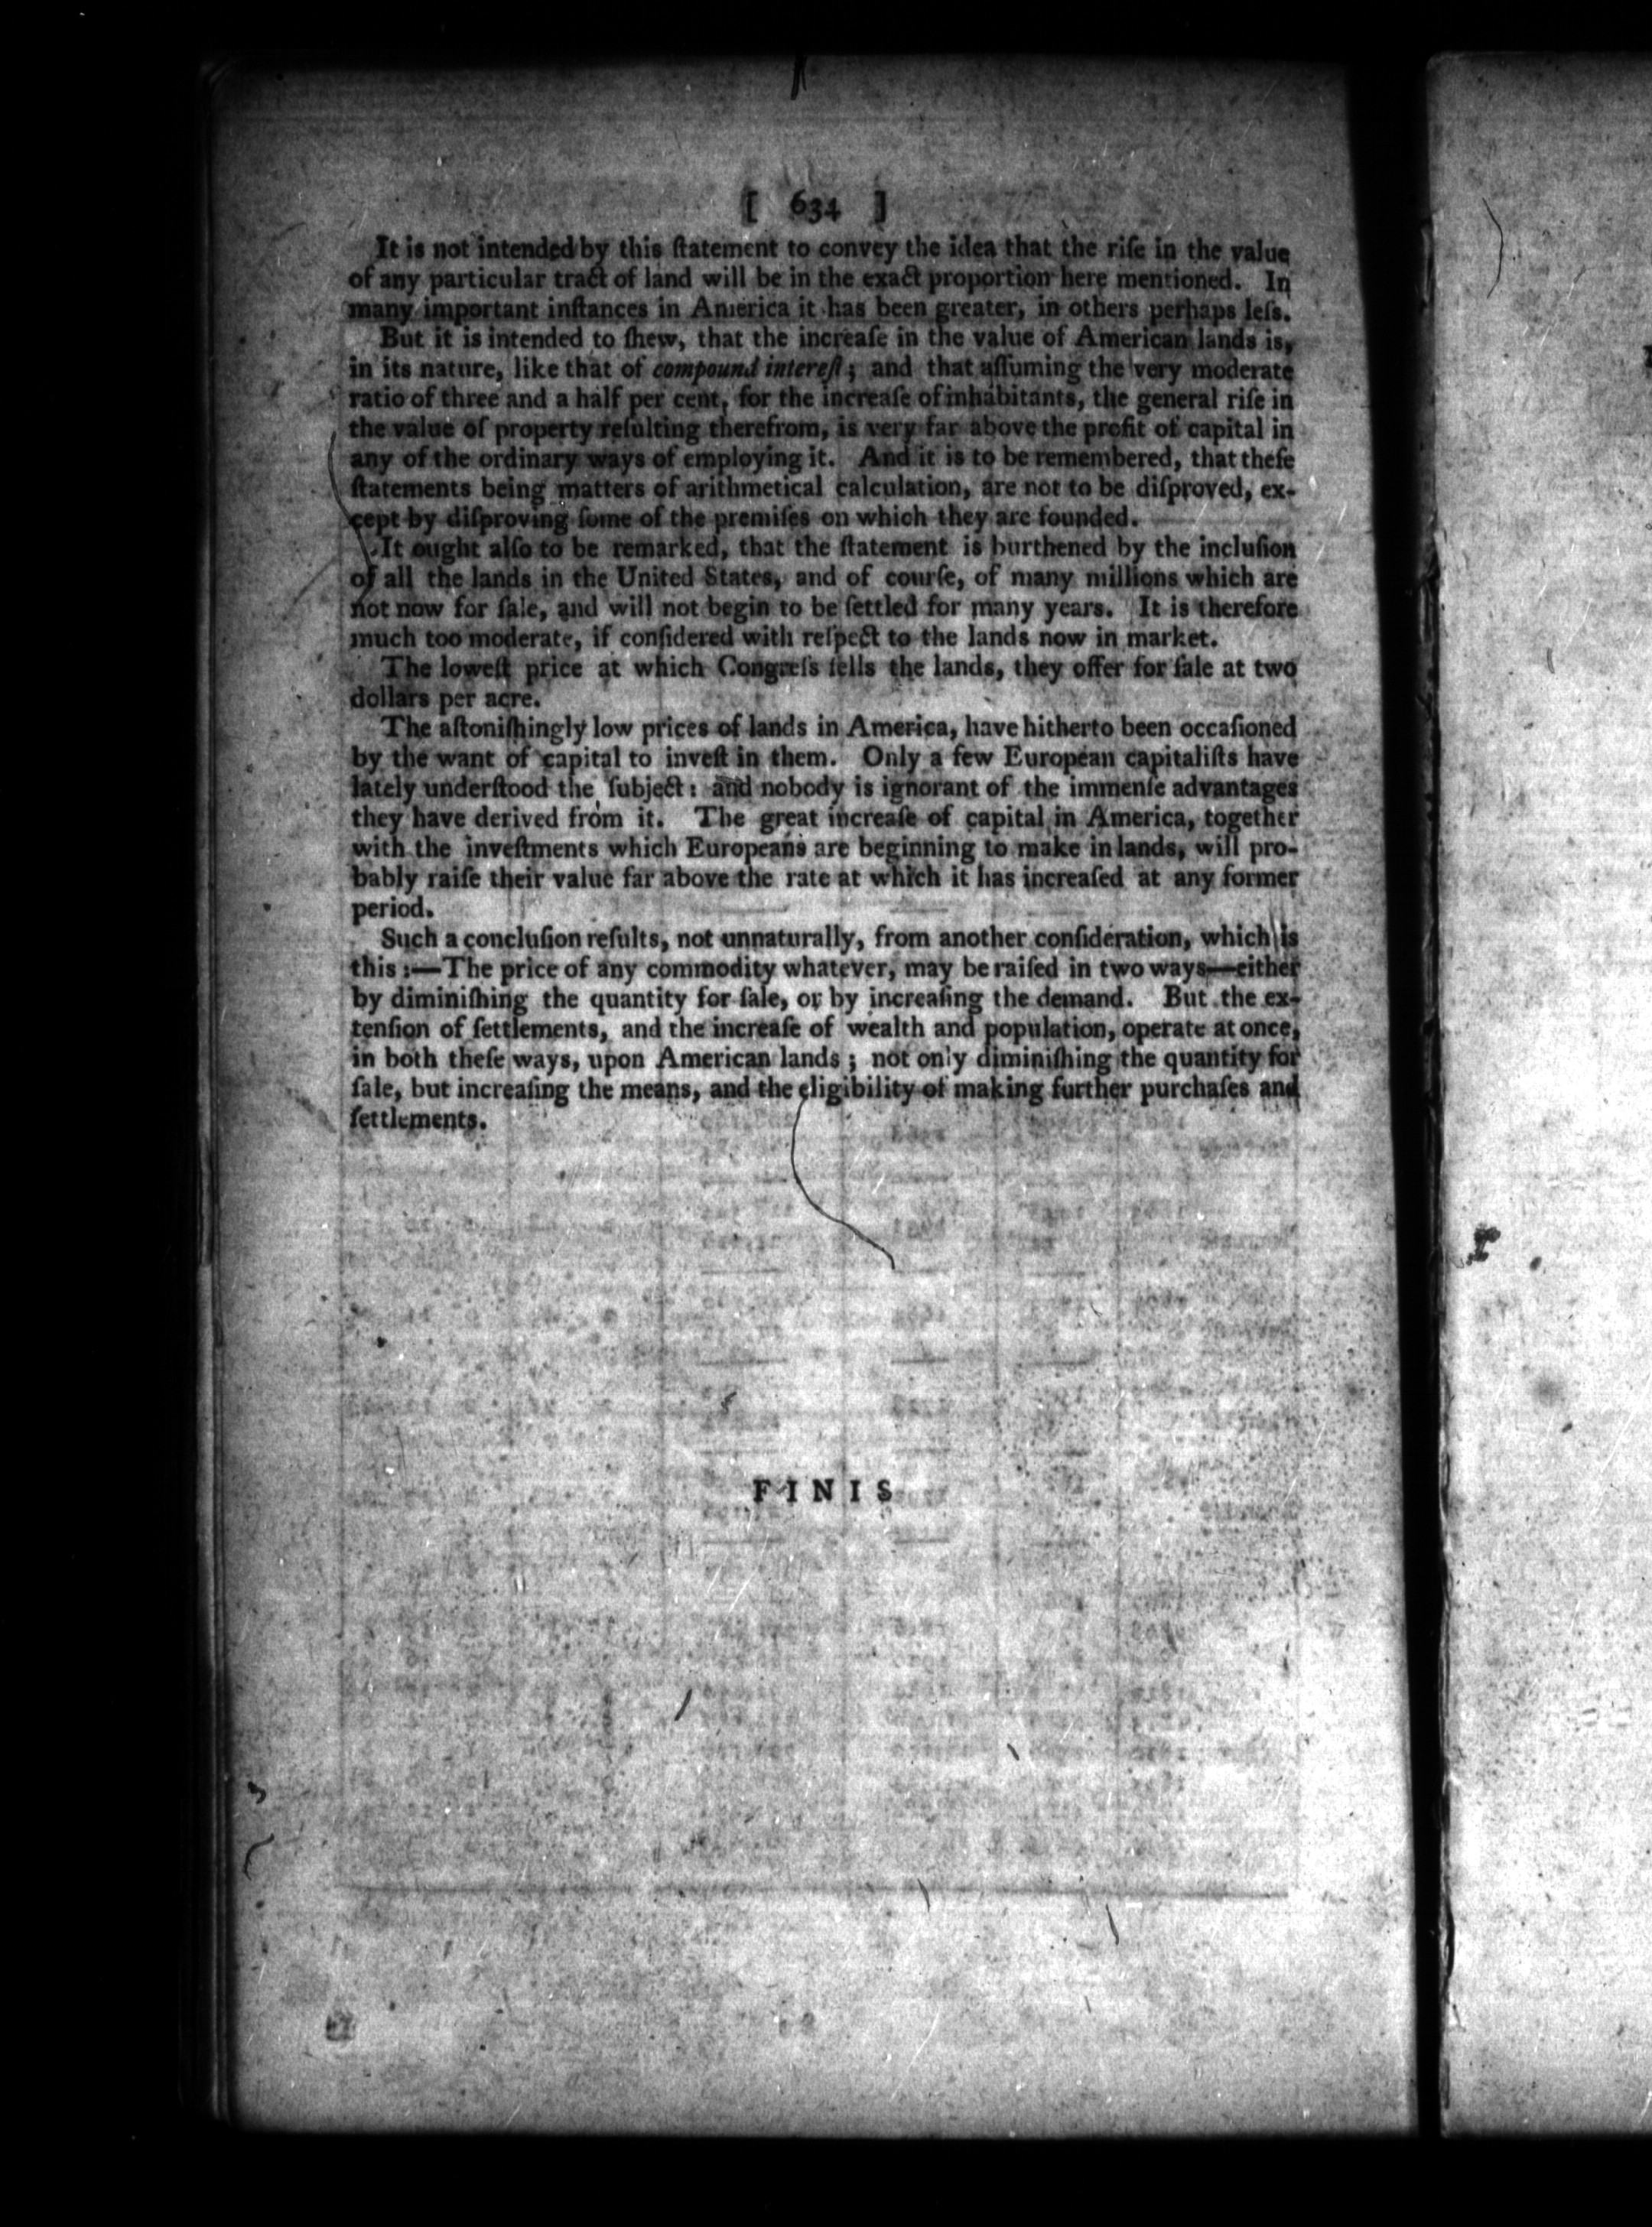 [ 634 ]
It is not intended by this ſtatement to convey the idea that the riſe in the value
of any particular tract of land will be in the exact proportion here mentioned. In
many important inſtances in America it has been greater, in others perhaps leſs.
But it is intended to ſhew, that the increaſe in the value of American lands is,
in its nature, like that of compound intereſt; and that aſſuming the very moderate
ratio of three and a half per cent, for the increaſe of inhabitants, the general riſe in
the value of property reſulting therefrom, is very far above the profit of capital in
any of the ordinary ways of employing it. And it is to be remembered, that theſe
ſtatements being matters of arithmetical calculation, are not to be diſproved, ex-
cept by diſproving ſome of the premiſes on which they are founded.
It ought alſo to be remarked, that the ſtatement is burthened by the incluſion
of all the lands in the United States, and of courſe, of many millions which are
not now for ſale, and will not begin to be ſettled for many years. It is therefore
much too moderate, if conſidered with reſpect to the lands now in market.
The loweſt price at which Congreſs ſells the lands, they offer for ſale at two
dollars per acre.
The aſtoniſhingly low prices of lands in America, have hitherto been occaſioned
by the want of capital to inveſt in them. Only a few European capitaliſts have
lately underſtood the ſubject: and nobody is ignorant of the immenſe advantages
they have derived from it. The great increaſe of capital in America, together
with the inveſtments which Europeans are beginning to make in lands, will pro-
bably raiſe their value far above the rate at which it has increaſed at any former
period.
Such a concluſion reſults, not unnaturally, from another conſideration, which is
this:—The price of any commodity whatever, may be raiſed in two ways—either
by diminiſhing the quantity for ſale, or by increaſing the demand. But the ex-
tenſion of ſettlements, and the increaſe of wealth and population, operate at once,
in both theſe ways, upon American lands; not only diminiſhing the quantity for
ſale, but increaſing the means, and the eligibility of making further purchaſes and
ſettlements.
FINIS